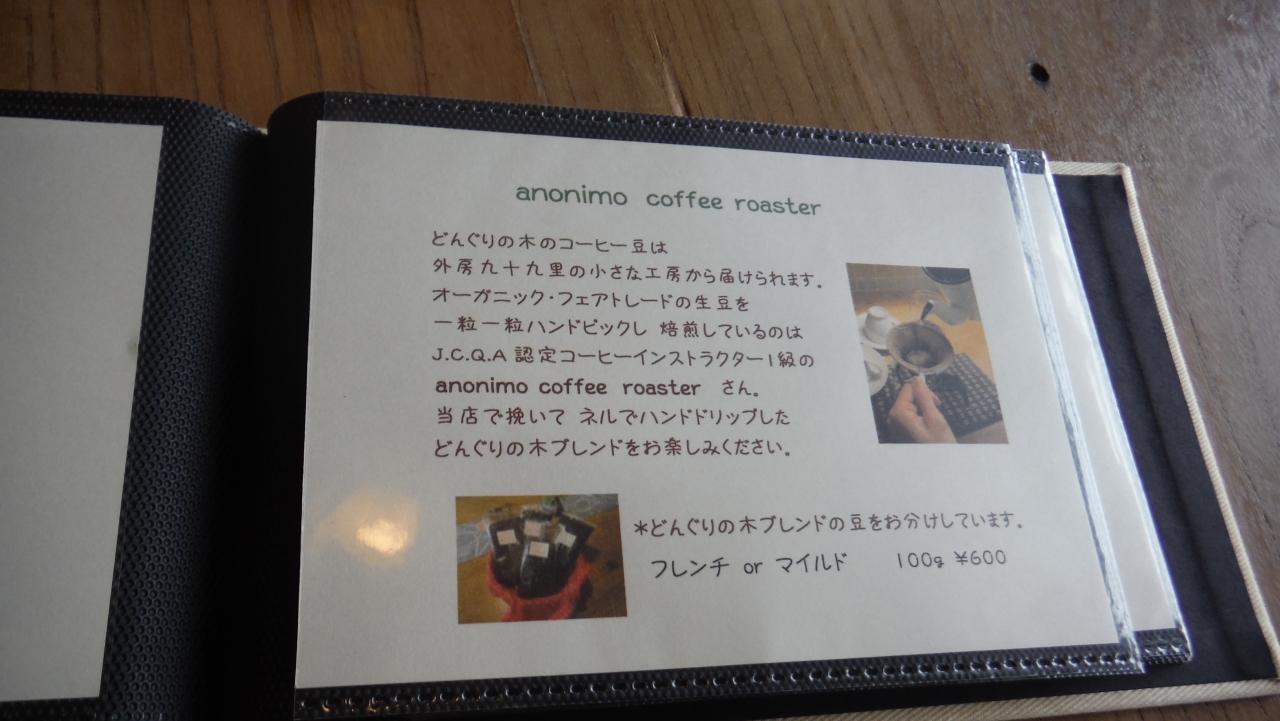 anonimo coffee roaster
どんぐりの木のコーヒー豆は
外房九十九里の小さな工房から届けられます。
オーガニック・フェアトレードの生豆を
一粒一粒ハンドピックし 焙煎しているのは
J.C.Q.A 認定コーヒーインストラクター1級の
anonimo coffee roaster さん。
当店で挽いて ネルでハンドドリップした
どんぐりの木ブレンドをお楽しみください。
*どんぐりの木ブレンドの豆をお分けしています。
フレンチ or マイルド 100g ¥600